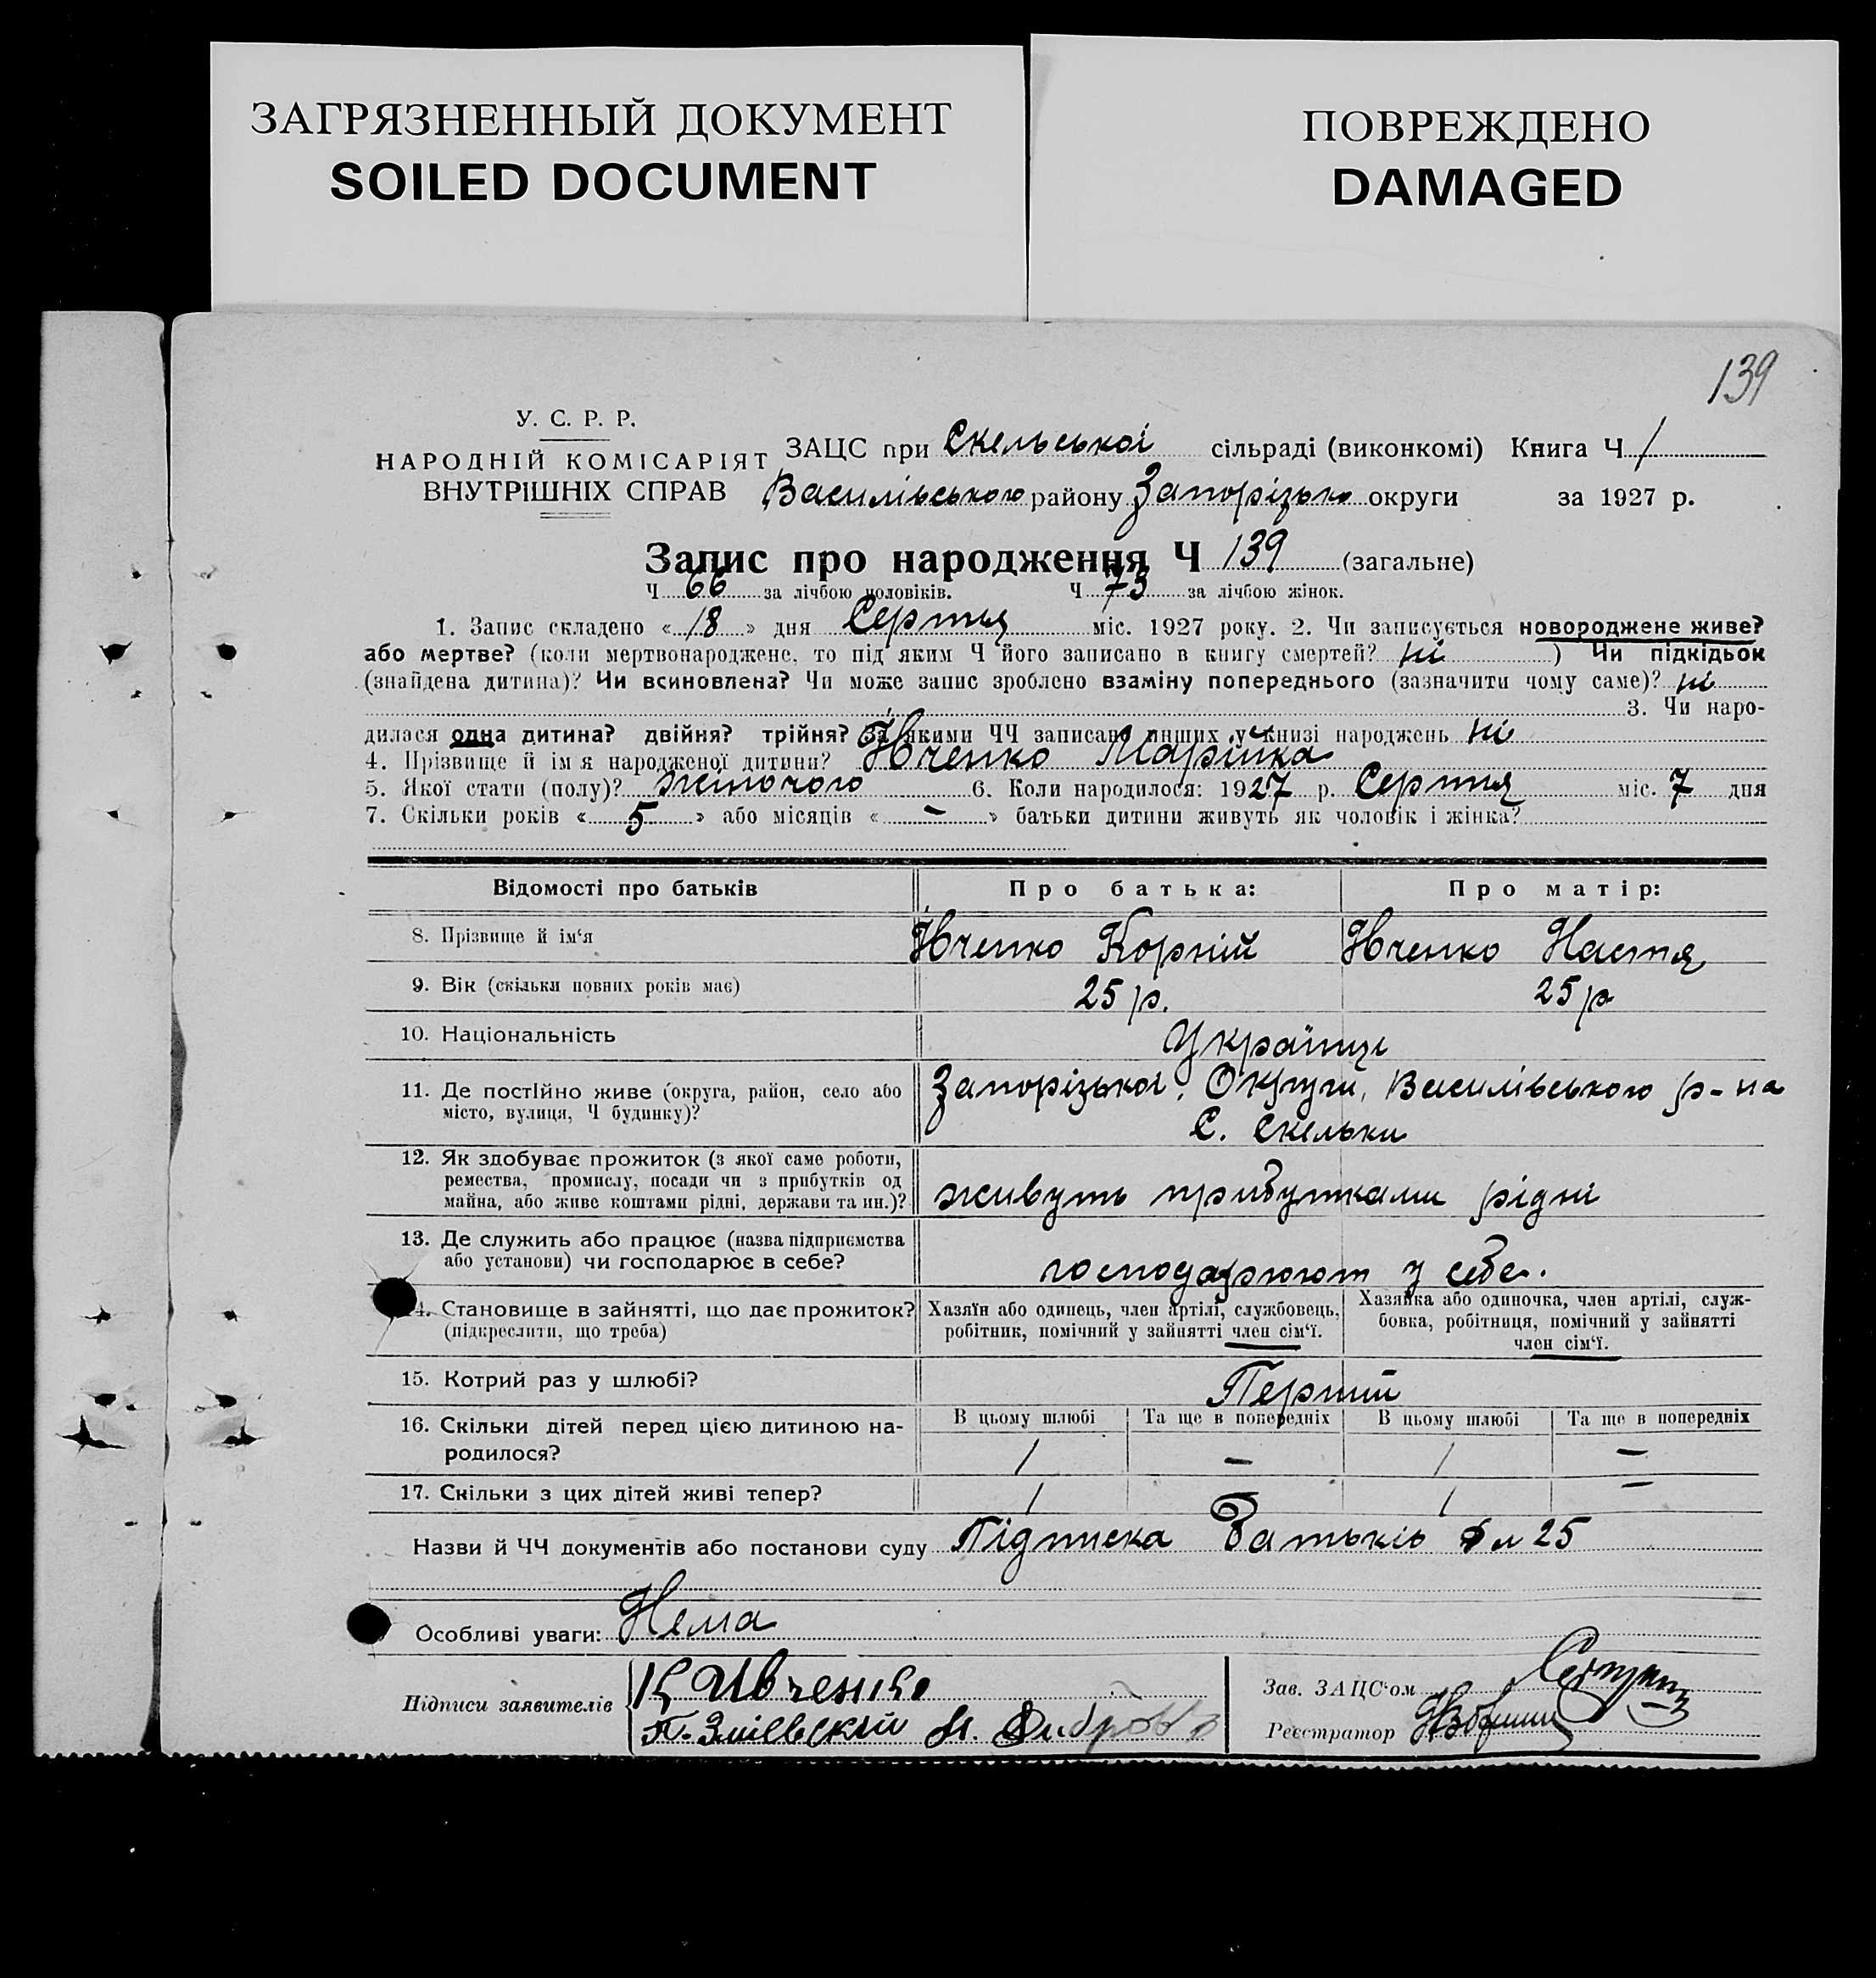 ЗАГРЯЗНЕННЫЙ ДОКУМЕНТ
SOILED DOCUMENT
ПОВРЕЖДЕНО
DAMAGED
139
У. С. Р. Р.
НАРОДНІЙ КОМІСАРІЯТ
ВНУТРІШНІХ СПРАВ
ЗАЦС при Скельської сільраді (виконкомі) Книга Ч 1
Василівського району Запорізько округи за 1927 р.
Запис про народження Ч 139 (загальне)
Ч 66 за лічбою чоловіків. Ч 73 за лічбою жінок.
1. Запис складено « 18 » дня Серпня міс. 1927 року. 2. Чи записується новороджене живе?
або мертве? (коли мертвонароджене, то під яким Ч його записано в книгу смертей? ні ) Чи підкідьок
(знайдена дитина)? Чи всиновлена? Чи може запис зроблено взаміну попереднього (зазначити чому саме)? ні
3. Чи наро-
дилася одна дитина? двійня? трійня? За якими ЧЧ записано инших у книзі народжень ні
4. Прізвище й ім я народженої дитини? Івченко Марійка
5. Якої стати (полу)? жіночого 6. Коли народилося: 1927 р. Серпня міс. 7 дня
7. Скільки років « 5 » або місяців « — » батьки дитини живуть як чоловік і жінка?
Відомості про батьків Про батька: Про матір:
8. Прізвище й ім‘я Івченко Корній Івченко Настя
9. Вік (скільки повних років має) 25 р. 25 р
10. Національність Українці
11. Де постійно живе (округа, район, село або
місто, вулиця, Ч будинку)?
Запорізької, Округи, Василівського р-на
С. Скельки
12. Як здобуває прожиток (з якої саме роботи,
ремества, промислу, посади чи з прибутків од
майна, або живе коштами рідні, держави та ин.)?
живуть прибутками рідні
13. Де служить або працює (назва підприємства
або установи) чи господарює в себе?
господарюют у себе.
14. Становище в зайнятті, що дає прожиток?
(підкреслити, що треба)
Хазяїн або одинець, член артілі, службовець,
робітник, помічний у зайнятті член сім‘ї.
Хазяйка або одиночка, член артілі, служ-
бовка, робітниця, помічний у зайнятті
член сім‘ї.
15. Котрий раз у шлюбі? Перший
16. Скільки дітей перед цією дитиною на-
родилося?
В цьому шлюбі Та ще в попередніх В цьому шлюбі Та ще в попередніх
1 — 1 —
17. Скільки з цих дітей живі тепер? 1 1 —
Назви й ЧЧ документів або постанови суду Підписка Батьків 25
Особливі уваги: Нема
Підписи заявителів К Ивченко
Зав. ЗАЦС‘ом
Реєстратор